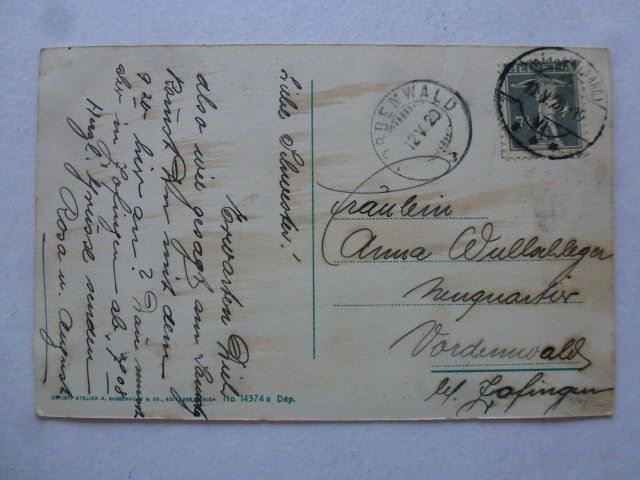 Liebe Schwester!
Erwarten Dich
also wie gesagt am Samstag
Kannst Du mit dem
9 20 hier an? Dann musst
aber in Zofingen ab, 7 08
Herzl. Grüsse senden
Rosa u. August
VORDEMWALD
12.V.20
Fräulein
Anna Wullschleger
Neuquartier
Vordemwald
bei Zofingen
No. 14374 e Dép.